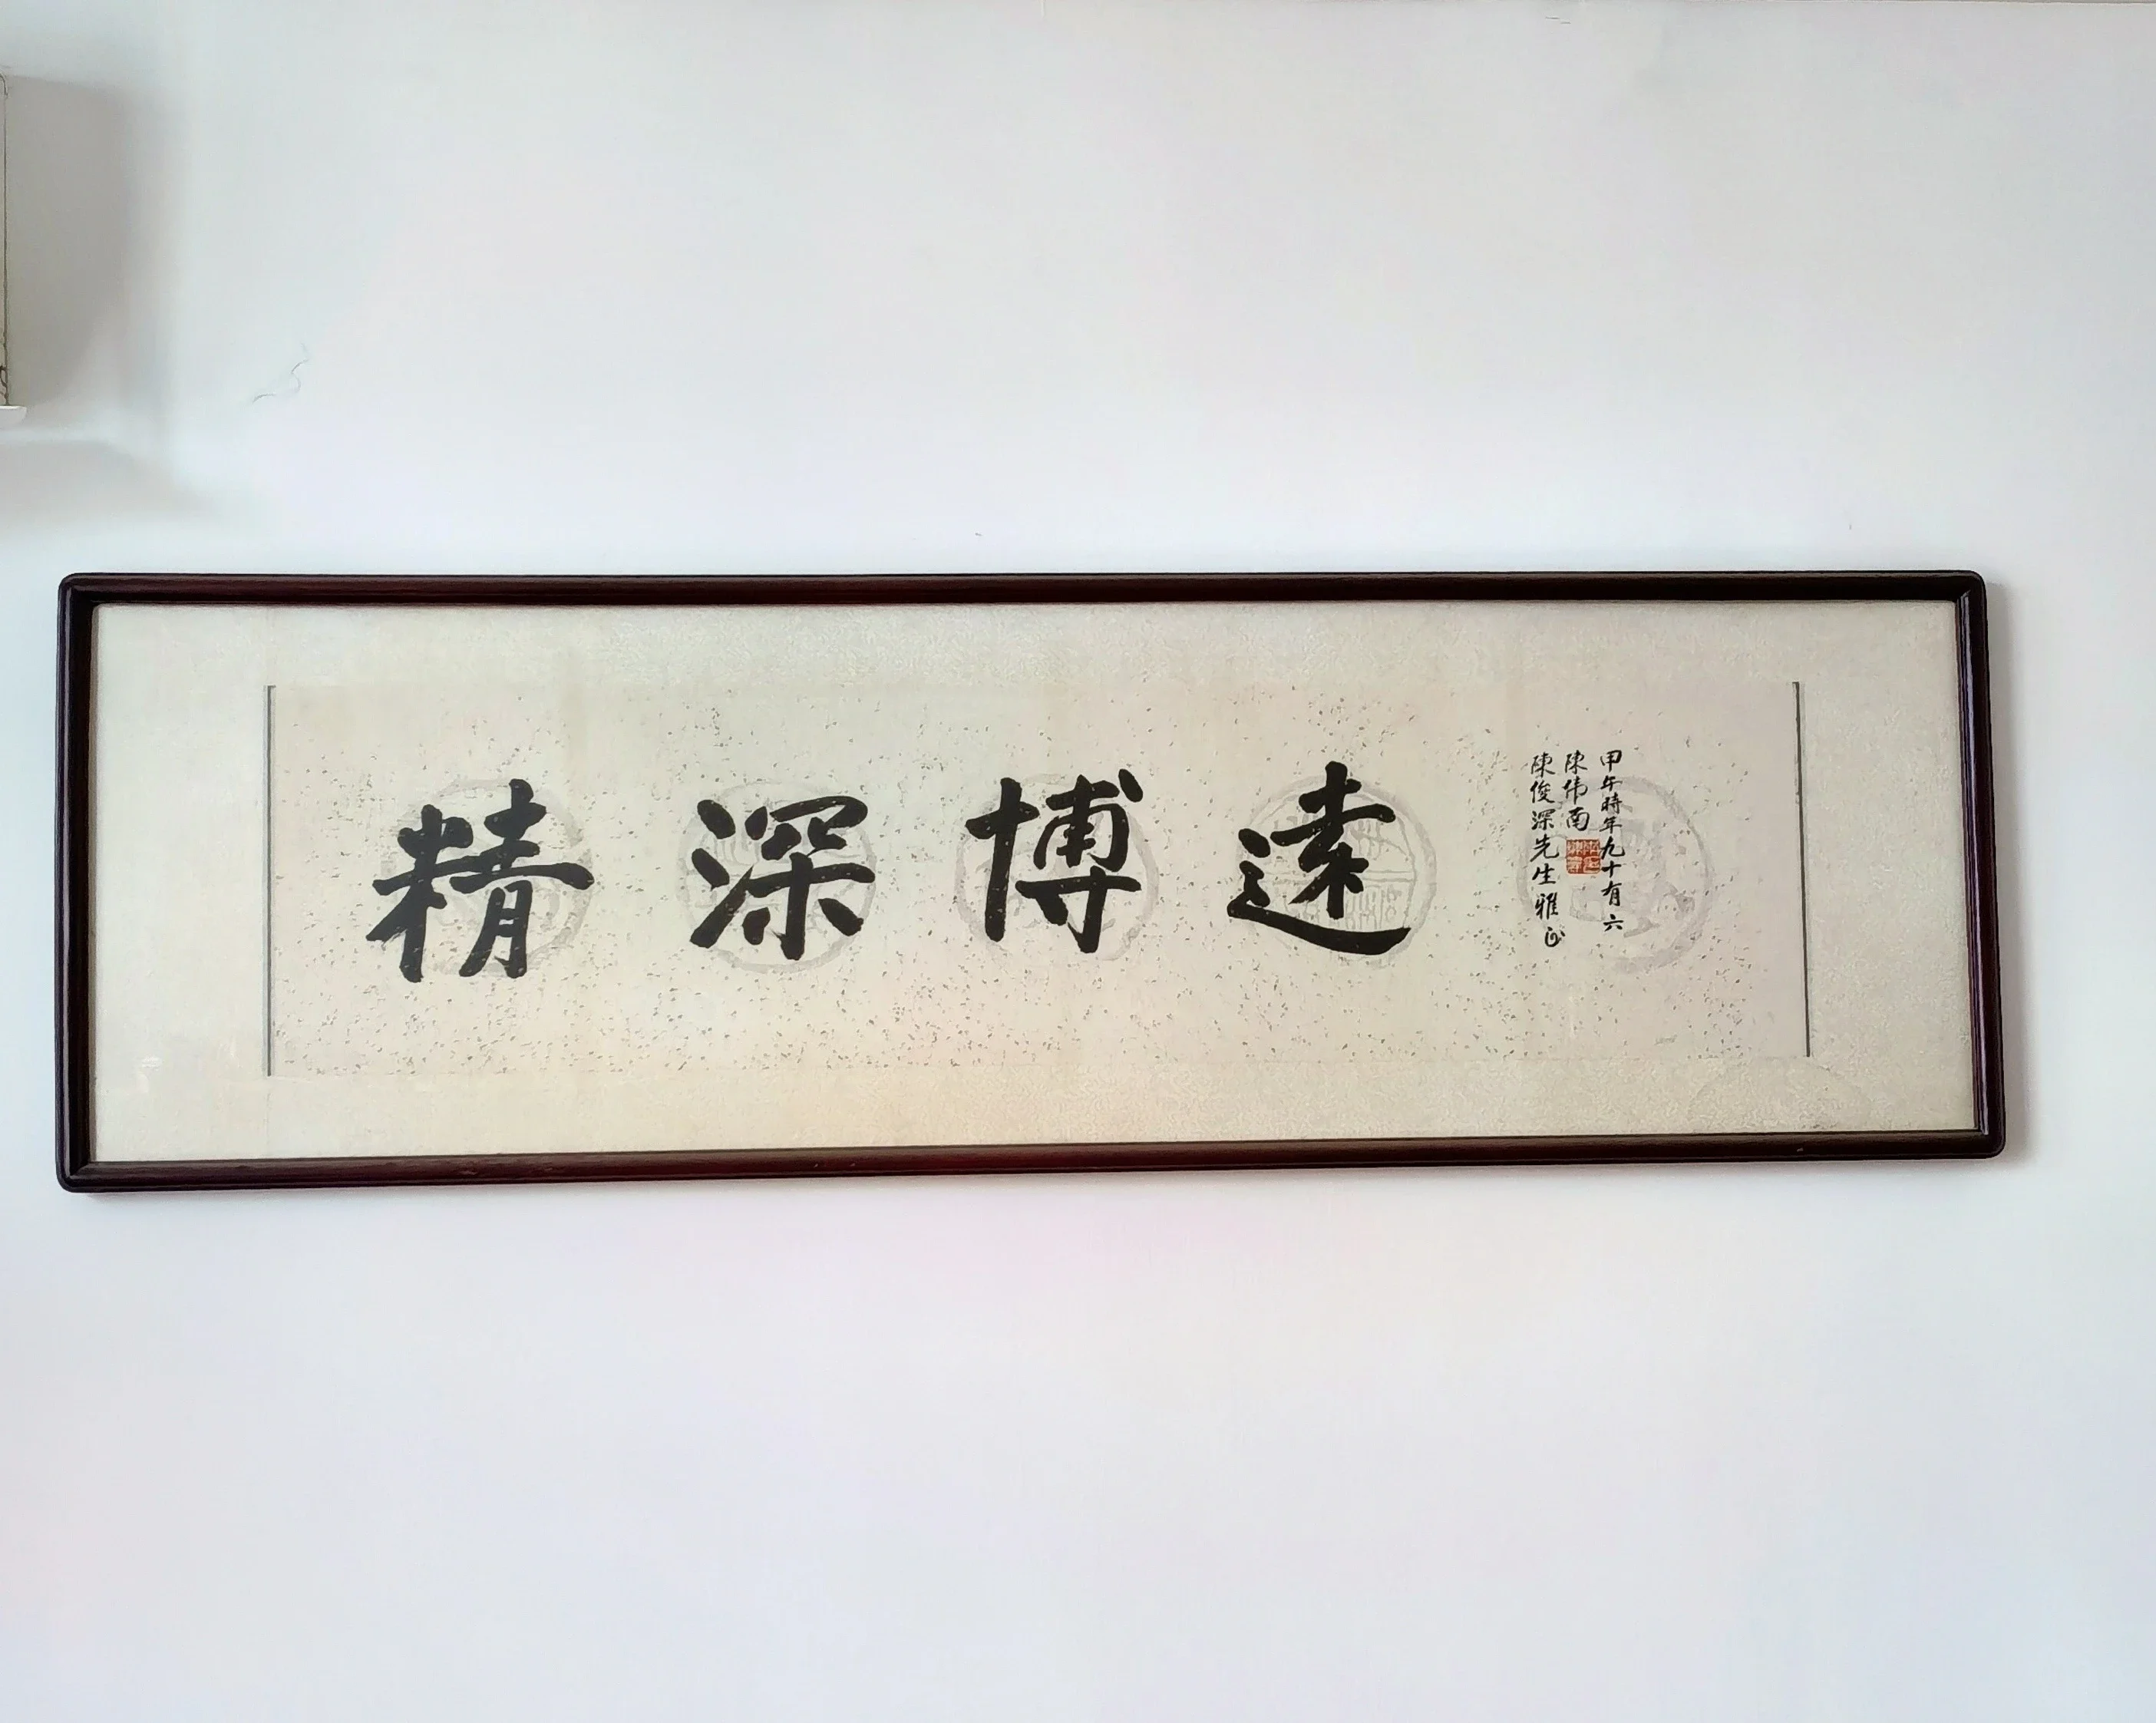 精深博遠
陳俊深先生雅正
陳伟南
甲午時年九十有六